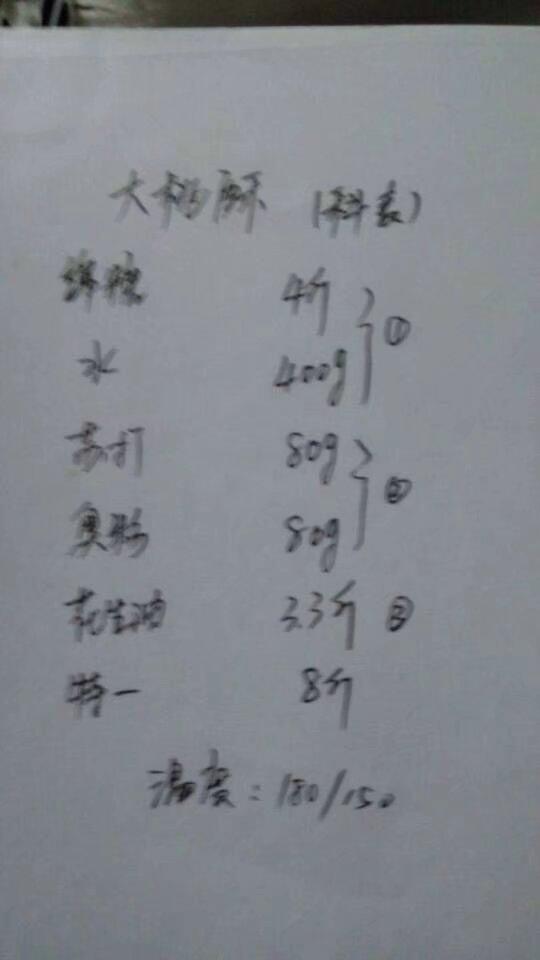 大桃酥 (料表)
绵糖 4斤
水 400g ①
苏打 80g
臭粉 80g ②
花生油 3.3斤 ③
特一 8斤
温度:180/150